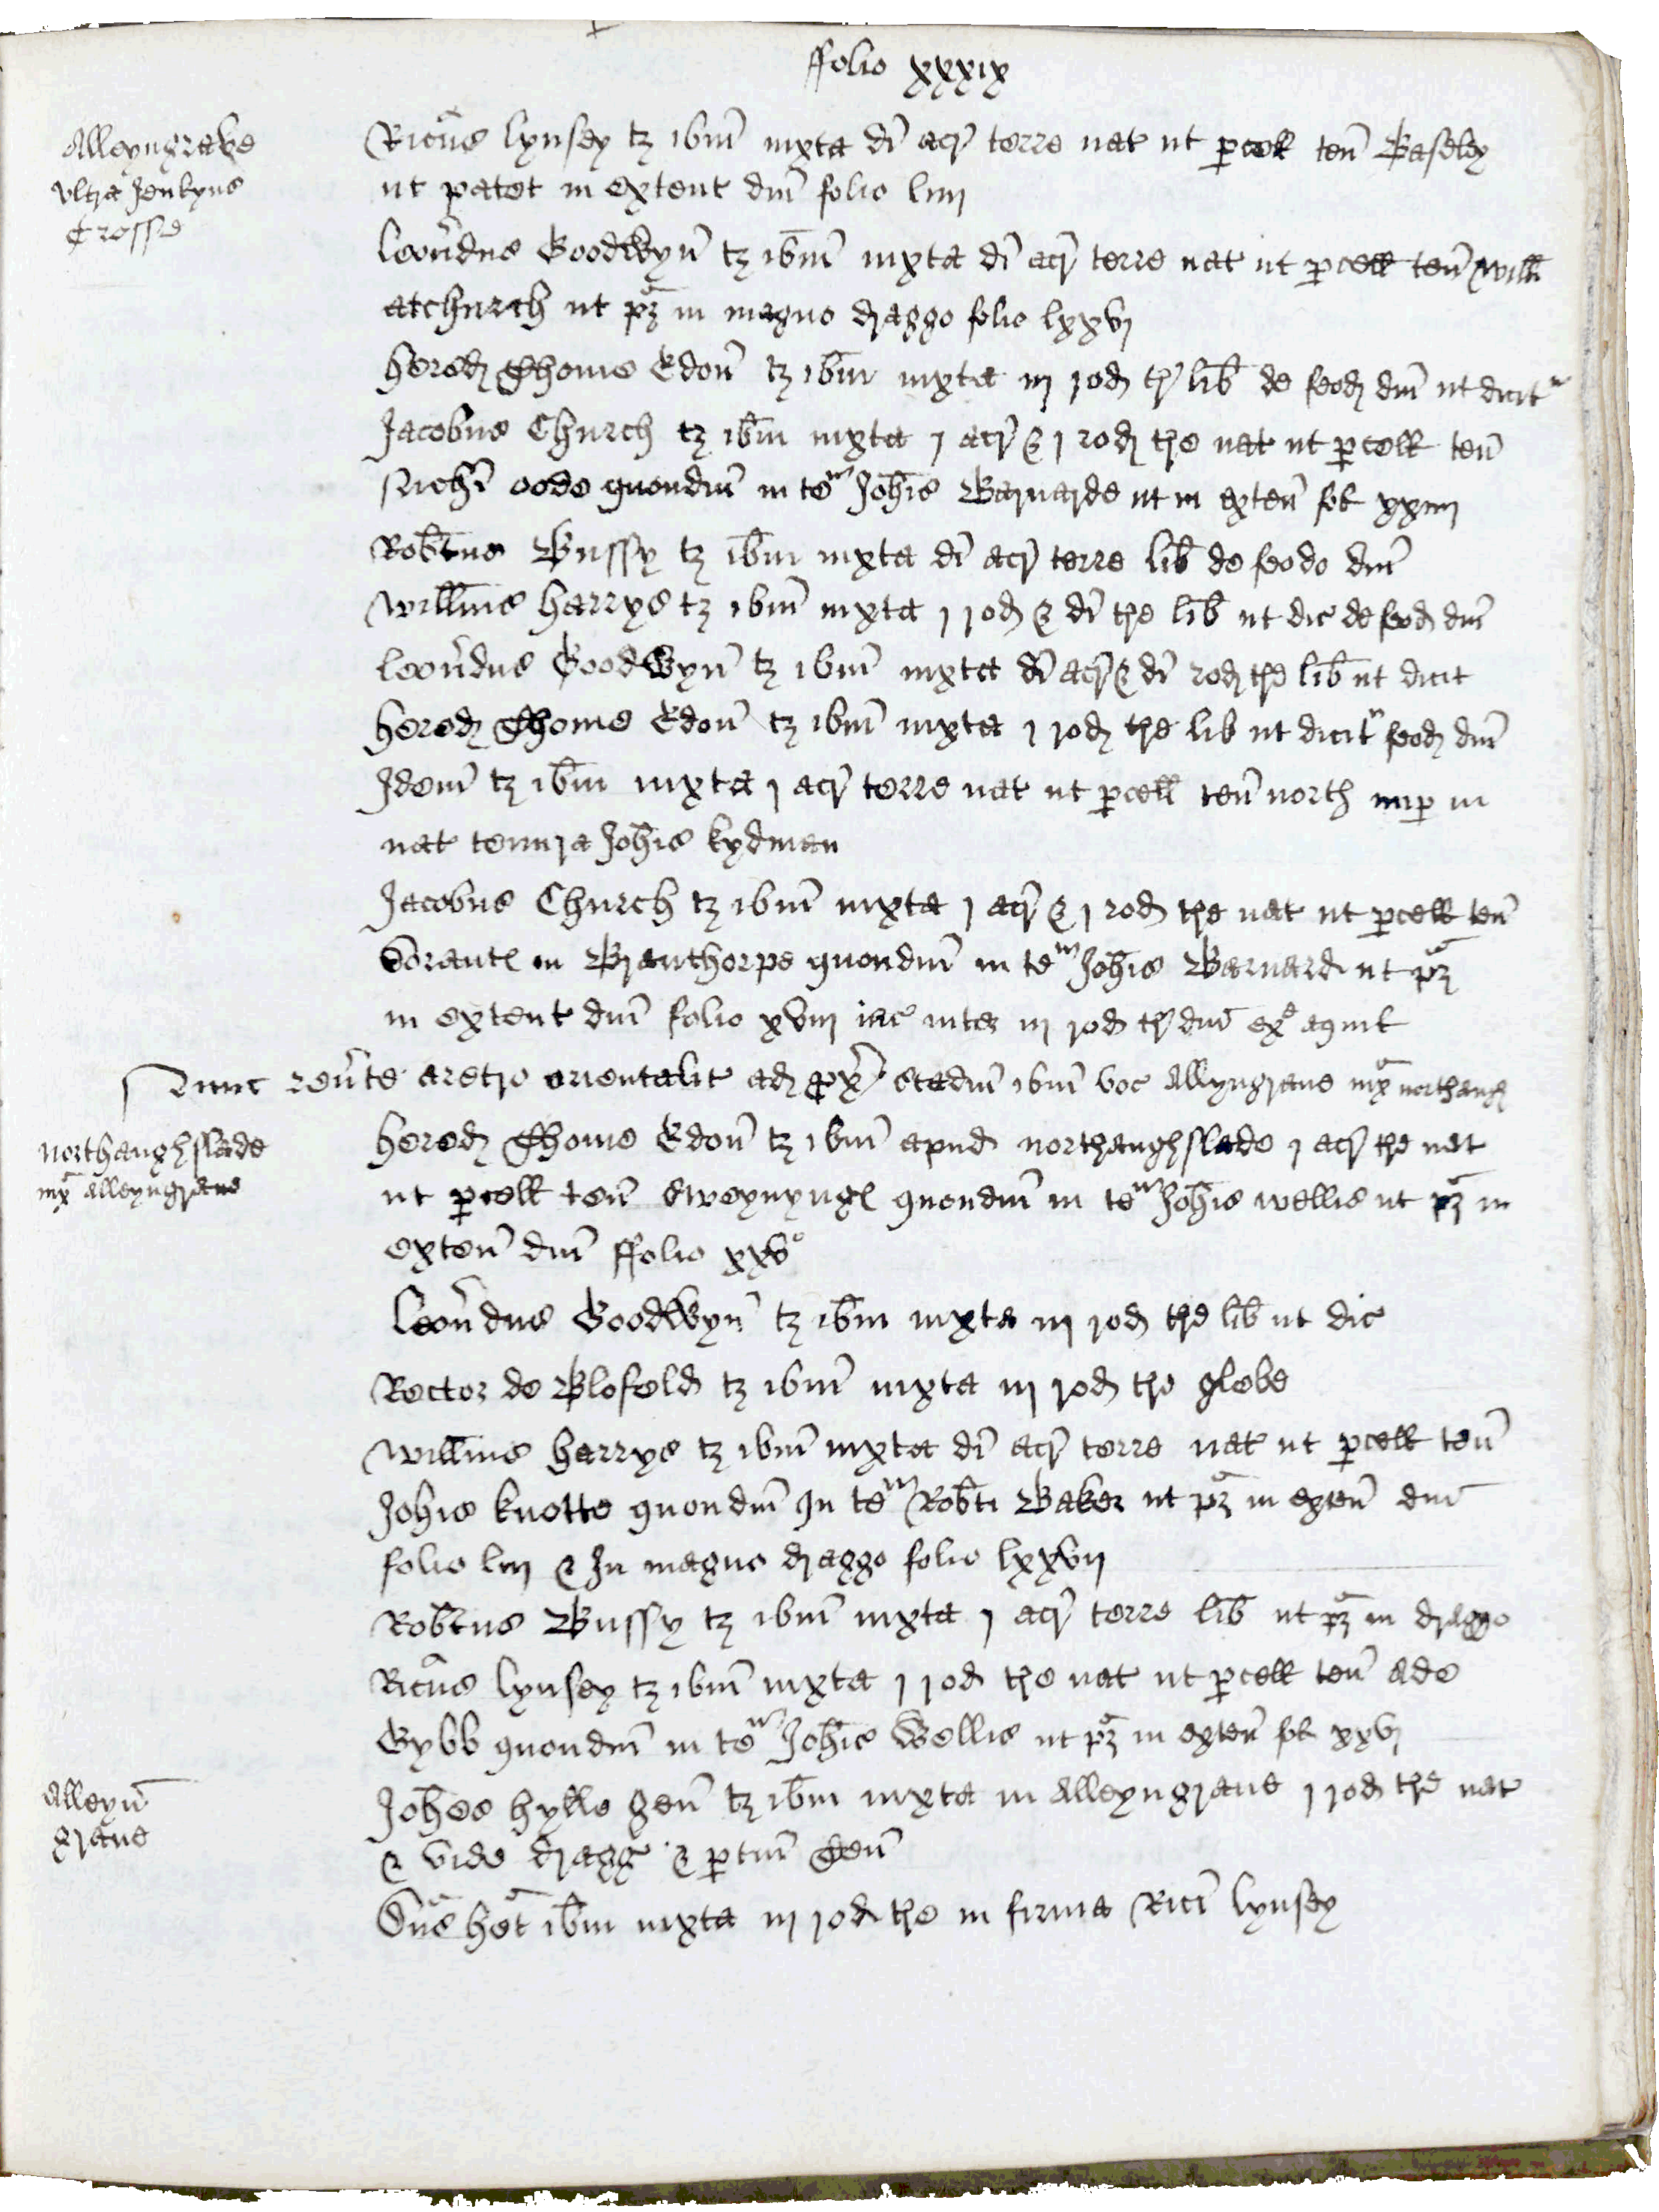 ffolio xxxix
Alleyngrave
vltra Jenkyns
Crosse
Ricūs Lynsey tz ibm̄ iuxta di acr̄ terre nat ut p̱cell ten̄ Baseley
ut patet in extent dn̄i folio liiij
Leon̄dus Goodwyn̄ tz ibm̄ iuxta di acr̄ terre nat ut p̱cell ten̄ Willi
atchurch ut pz in magno draggo folio lxxvj
Hered Thome Edon̄ tz ibm̄ iuxta iij rod tr̄ lib̄ de feod dn̄i ut dicitr
Jacobus Church tz ibm̄ iuxta j acr̄ & j rod tre nat ut p̱cell ten̄
quondm̄ in tem Joh̄is Barnarde ut in exten̄ fol xxiiij
Rob̄tus Bussy tz ibm̄ iuxta di acr̄ terre lib̄ de feodo dn̄i
Willm̄s Harrys tz ibm̄ iuxta j rod & di tre lib̄ ut dic de feod dn̄i
Leon̄dus Goodwyn̄ tz ibm̄ iuxta di acr̄ & di rod tre lib̄ ut dicit
Hered Thome Edon̄ tz ibm̄ iuxta j rod tre lib ut dicitr feod dn̄i
Idem̄ tz ibm̄ iuxta j acr̄ terre nat ut p̱cell ten̄ north nup in
nat tenura Joh̄is Kydman
Jacobus Church tz ibm̄ iuxta j acr̄ & j rod tre nat ut p̱cell ten̄
in Branthorpe quondm̄ in tem Joh̄is Barnard ut pz
in extent dn̄i folio xviij iac inter iij rod tr̄ dn̄i ex aquil
Nunc reu̅te aretro orientalit ad px̄ stadm̄ ibm̄ voc Alleyngraue iux northaugh
northaughslade
iux Alleyngraue
Hered Thome Edon̄ tz ibm̄ apud northaughslade j acr̄ tre nat
ut p̱cell ten̄ Sweynyngs quondm̄ in tem Joh̄is Wellis ut pz in
exten̄ dn̄i ffolio xxvo
Leon̄dus Goodwyn̄ tz ibm̄ iuxta iij rod tre lib̄ ut dic
Rector de Blofeld tz ibm̄ iuxta iij rod tre glebe
Willm̄s Harrys tz ibm̄ iuxta di acr̄ terre nat ut p̱cell ten̄
Johis Knotte quondm̄ In tem Rob̄ti Baker ut pz in exten̄ dn̄i
folio liij & In magno draggo folio lxxvij
Rob̄tus Bussy tz ibm̄ iuxta j acr̄ terre lib̄ ut pz in draggo
Ricūs Lynsey tz ibm̄ iuxta j rod tre nat ut p̱cell ten̄ Ade
Gybb quondm̄ in tem Joh̄is Wellis ut pz in exten̄ fol xxvj
Alleyn̄
graue
Joh̄es Hylle gen̄ tz ibm̄ iuxta in Alleyngraue j rod tre nat
& vide dragg & p̱tin̄ ten̄
Dn̄s het ibm̄ iuxta iij rod tre in firma Rici Lynsey